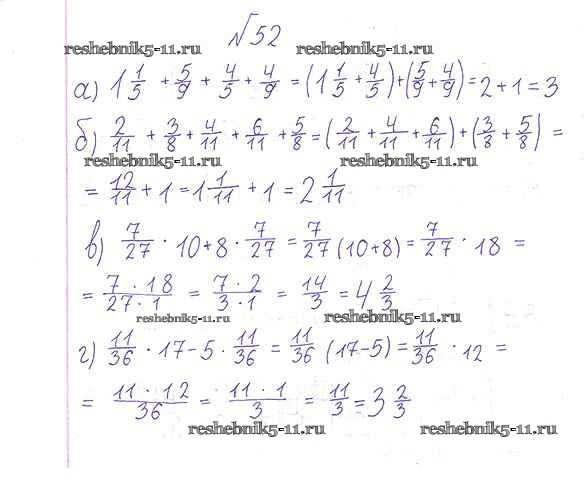 №52
reshebnik5-11.ru reshebnik5-11.ru
а) 1 1/5 + 5/9 + 4/5 + 4/9 = (1 1/5 + 4/5) + (5/9 + 4/9) = 2 + 1 = 3
б) 2/11 + 3/8 + 4/11 + 6/11 + 5/8 = (2/11 + 4/11 + 6/11) + (3/8 + 5/8) =
reshebnik5-11.ru reshebnik5-11.ru
= 12/11 + 1 = 1 1/11 + 1 = 2 1/11
в) 7/27 · 10 + 8 · 7/27 = 7/27 (10 + 8) = 7/27 · 18 =
= 7 · 18/27 · 1 = 7 · 2/3 · 1 = 14/3 = 4 2/3
reshebnik5-11.ru reshebnik5-11.ru
г) 11/36 · 17 - 5 · 11/36 = 11/36 (17 - 5) = 11/36 · 12 =
= 11 · 12/36 = 11 · 1/3 = 11/3 = 3 2/3
reshebnik5-11.ru reshebnik5-11.ru